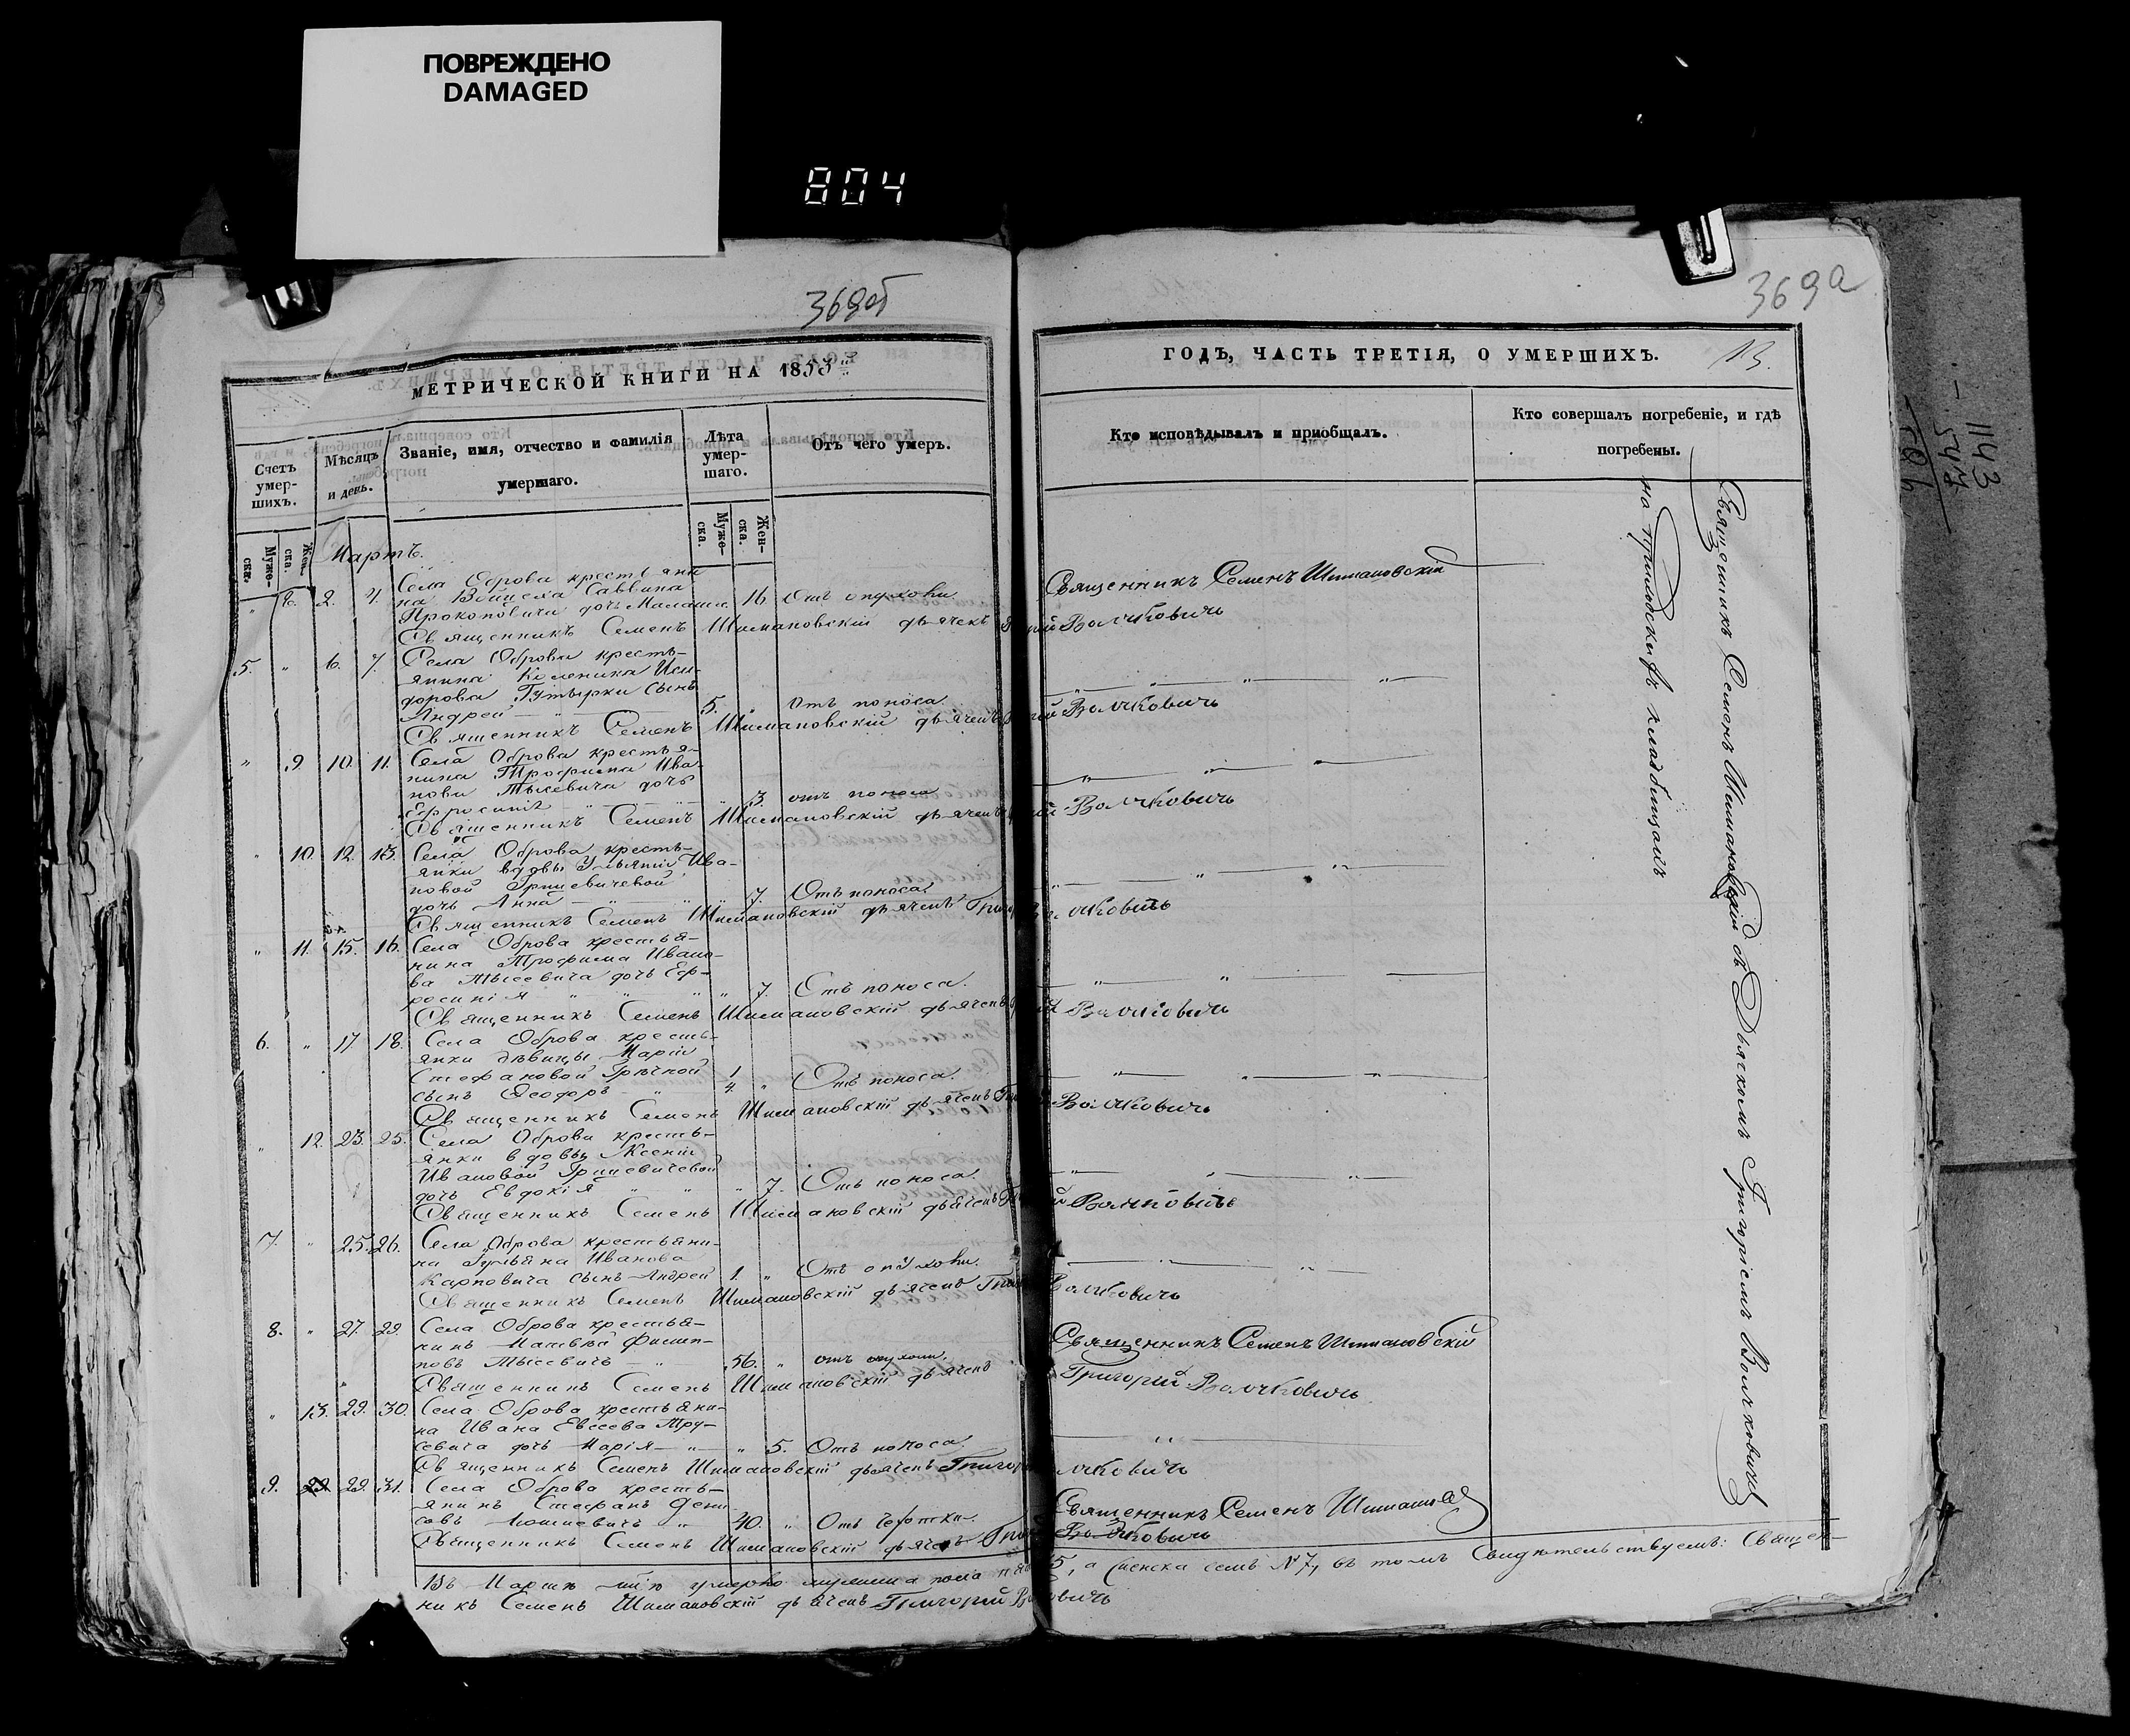 ПОВРЕЖДЕНО
DAMAGED
804
369об
369а
МЕТРИЧЕСКОЙ КНИГИ НА 1853й
ГОДЪ, ЧАСТЬ ТРЕТІЯ, О УМЕРШИХЪ.
13.
Счетъ умер-шихъ.
Муже-ска.
Жен-ска.
Мѣсяцъ и день.
Званіе, имя, отчество и фамилія умершаго.
Лѣта умер-шаго.
Муже-ска.
Жен-ска.
Отъ чего умеръ.
Кто исповѣдывалъ и пріобщалъ.
Кто совершалъ погребеніе, и гдѣ погребены.
Мартъ.
" 8. 2. 4. Села Оброва крестьяни-
на Саввина
Прокоповича дочь 16 Отъ опухоли Священникъ Семенъ Шимановскій
Священникъ Семенъ Шимановскій дьячекъ Волчковичь
5. " 6. 7. Села Оброва кресть-
янина Клеменка Иси-
дорова сынъ
Андрей 5. " Отъ поноса
Священникъ Семенъ Шимановскій дьячекъ Волчковичь
" 9. 10. 11. Села Оброва крестья-
нина Трофима Ива-
нова Мысевича дочь
Ефросинія " 3. отъ поноса
Священникъ Семенъ Шимановскій дьячекъ Волчковичь
" 10. 12. 13. Села Оброва кресть-
янки вдовы Ульяніи Ива-
новой Грицевичевой
дочь Анна " 7. Отъ поноса.
Священникъ Семенъ Шимановскій дьячекъ Волчковичь
" 11. 15. 16. Села Оброва крестья-
нина Трофима Ивано-
ва Мысевича дочь Еф-
росинія " 7. Отъ поноса.
Священникъ Семенъ Шимановскій дьячекъ Волчковичь
6. " 17. 18. Села Оброва кресть-
янки дѣвицы Маріи
Стефановой
сынъ Ѳеодоръ 1/4. " Отъ поноса.
Священникъ Семенъ Шимановскій дьячекъ Волчковичь
" 12. 23. 25. Села Оброва кресть-
янки вдовы Ксеніи
Ивановой Грицевичевой
дочь Евдокія " 7. Отъ поноса.
Священникъ Семенъ Шимановскій дьячекъ Волчковичь
7. " 25. 26. Села Оброва крестьяни-
на Гульяна Иванова
Карповича сынъ Андрей 1. " Отъ опухоли.
Священникъ Семенъ Шимановскій дьячекъ Волчковичь
8. " 27. 29. Села Оброва крестья-
нинъ Матвѣй Филип-
повъ Мысевичь 56. " отъ опухоли. Священникъ Семенъ Шимановскій
Священникъ Семенъ Шимановскій дьячекъ Григорій Волчковичь
" 13. 29. 30. Села Оброва крестьяни-
на Ивана Евсеева Тру-
севича дочь Марія " 5. Отъ поноса.
Священникъ Семенъ Шимановскій дьячекъ Волчковичь
9. 29. 31. Села Оброва кресть-
янинъ Стефанъ Дени-
совъ 40. " Отъ чахотки. Священникъ Семенъ
Священникъ Семенъ Шимановскій дьячекъ Волчковичь
Въ Мартѣ м-цѣ умерло мужеска пола 5, а женска семь №7, въ томъ Свидѣтельствуемъ: Священ-
никъ Семенъ Шимановскій дьячекъ Григорій Волчковичь
Священникъ Семенъ Шимановскій съ Дьячкомъ Григоріемъ Волчковичемъ
на приходскомъ кладбищахъ